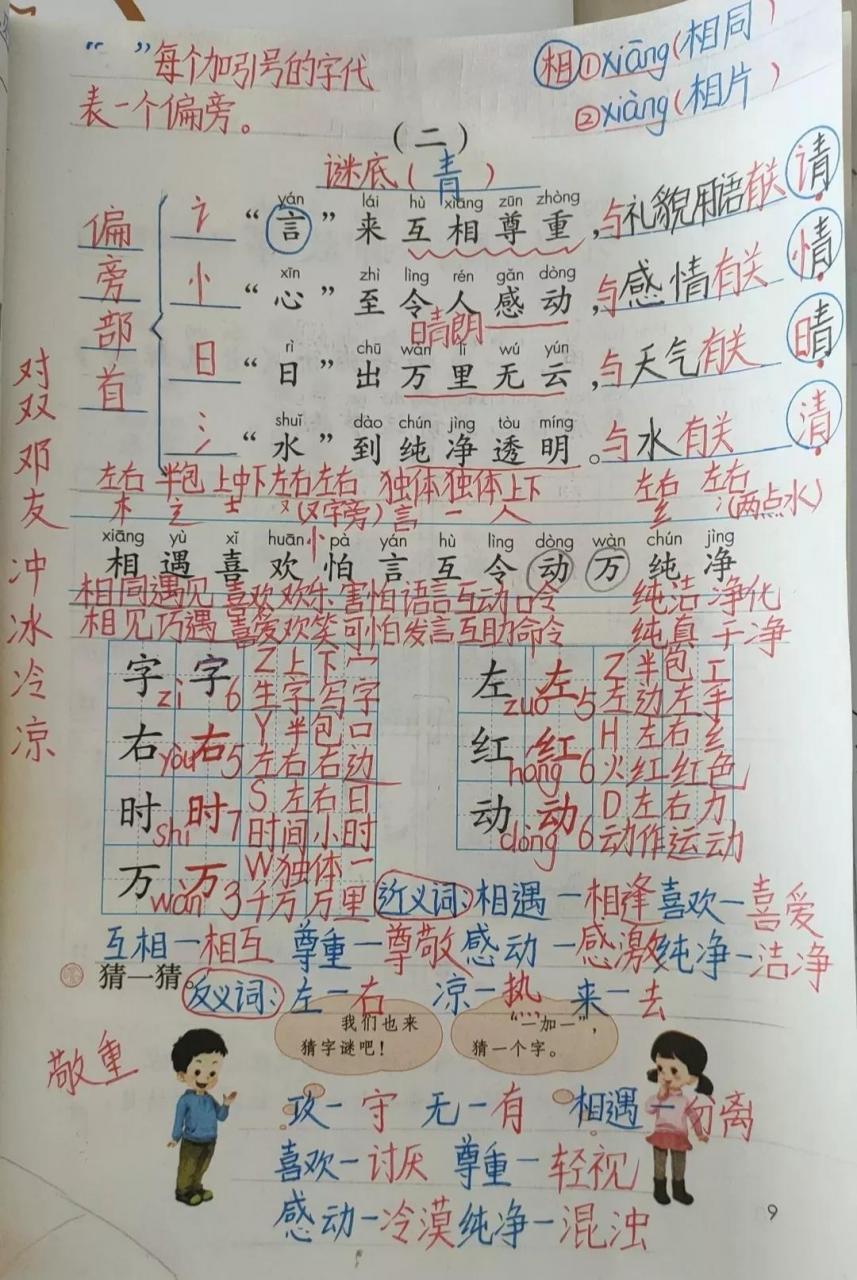 “ ”每个加引号的字代
表一个偏旁。
相①xiāng(相同)
②xiàng(相片)
(二)
谜底(青)
偏旁部首
yán lái hù xiāng zūn zhòng
讠“言”来互相尊重,与礼貌用语有关 请
xīn zhì lìng rén gǎn dòng
忄“心”至令人感动,与感情有关 情
晴朗
rì chū wàn lǐ wú yún
日“日”出万里无云,与天气有关 晴
shuǐ dào chún jìng tòu míng
氵“水”到纯净透明。与水有关 清
对双邓友
冲冰冷凉
左右 半包 上中下 左右 左右 独体 独体 上下 左右 左右
木 辶 士 又(又字旁) 言 一 人 纟 冫(两点水)
xiāng yù xǐ huān pà yán hù lìng dòng wàn chún jìng
相 遇 喜 欢 忄怕 言 互 令 动 万 纯 净
相同 遇见 喜欢 欢乐 害怕 语言 互动 口令 纯洁 净化
相见 巧遇 喜爱 欢笑 可怕 发言 互助 命令 纯真 干净
字 字 zì 6 Z 上下 宀
生字 写字
右 右 yòu 5 Y 半包 口
左右 右边
时 时 shí 7 S 左右 日
时间 小时
万 万 wàn 3 W 独体 一
千万 万里
左 左 zuǒ 5 Z 半包 工
左边 左手
红 红 hóng 6 H 左右 纟
火红 红色
动 动 dòng 6 D 左右 力
动作 运动
近义词:相遇—相逢 喜欢—喜爱
互相—相互 尊重—尊敬 感动—感激 纯净—洁净
猜一猜。
反义词:左—右 凉—热 来—去
我们也来
猜字谜吧!
“一加一”,
猜一个字。
敬重
攻—守 无—有 相遇—分离
喜欢—讨厌 尊重—轻视
感动—冷漠 纯净—混浊
9